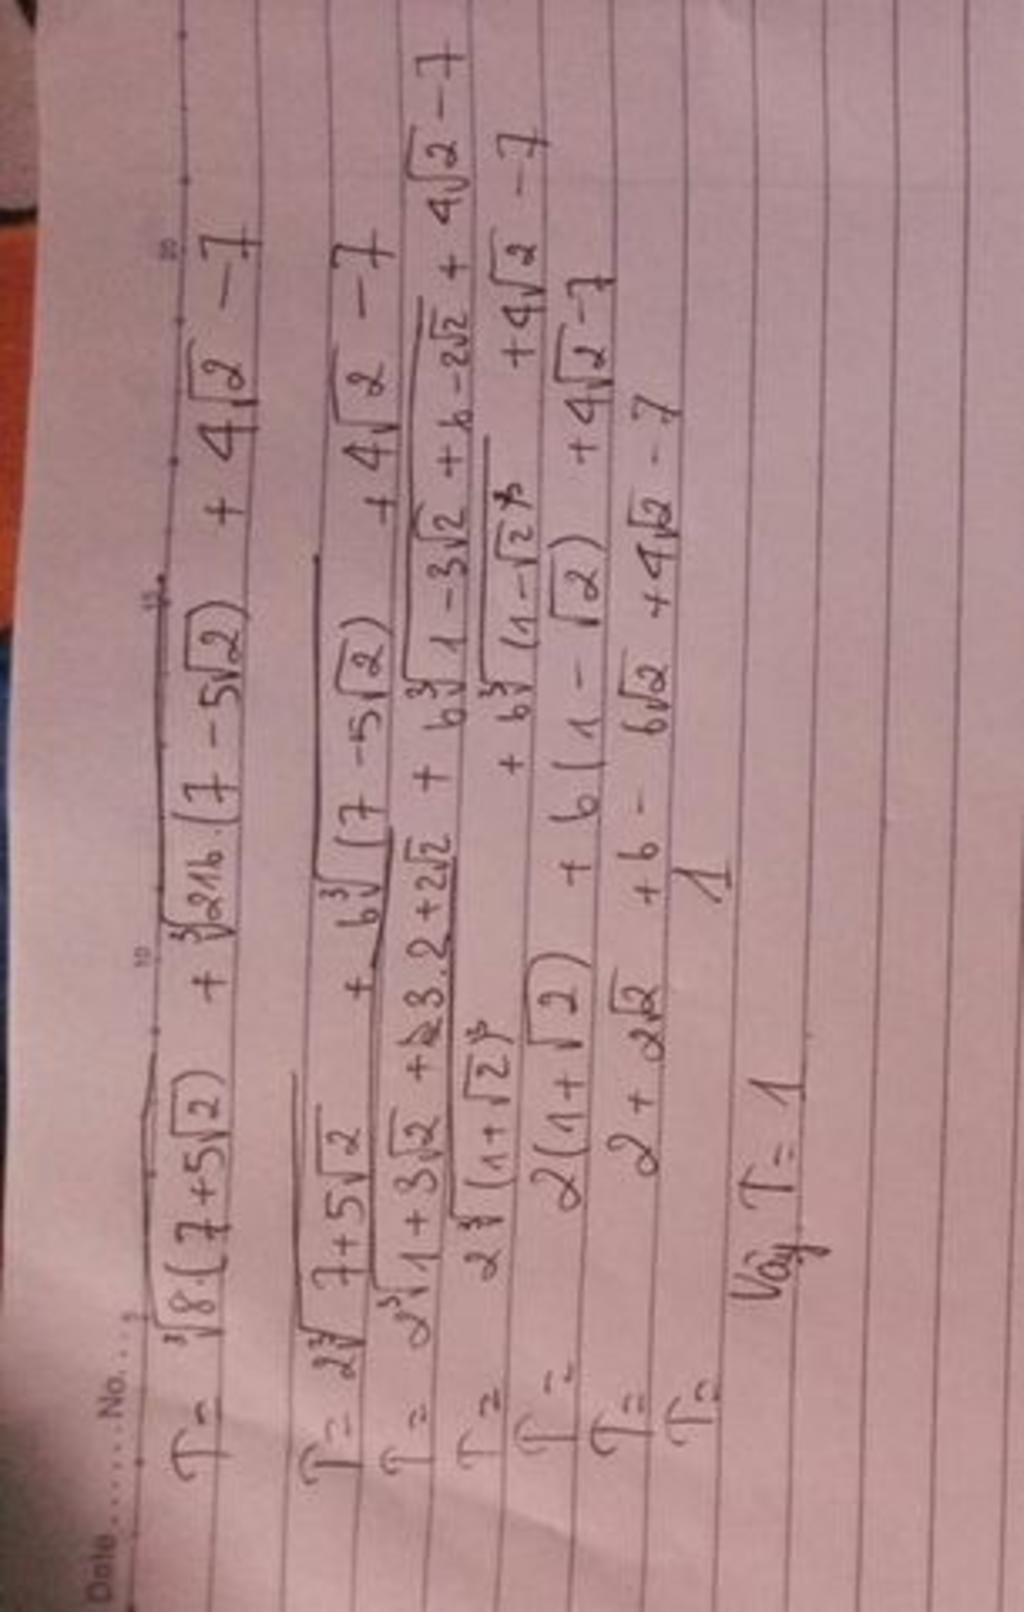 Date ........ No. ...
5 10 15 20
T = ∛8.(7+5√2) + ∛216.(7-5√2) + 4√2 - 7
T = 2∛7+5√2 + 6∛(7-5√2) + 4√2 - 7
T = 2∛1+3√2+3.2+2√2 + 6∛1-3√2+6-2√2 + 4√2 - 7
T = 2∛(1+√2)³ + 6∛(1-√2)³ + 4√2 - 7
T = 2(1+√2) + 6(1-√2) + 4√2 - 7
T = 2 + 2√2 + 6 - 6√2 + 4√2 - 7
T = 1
Vậy T = 1